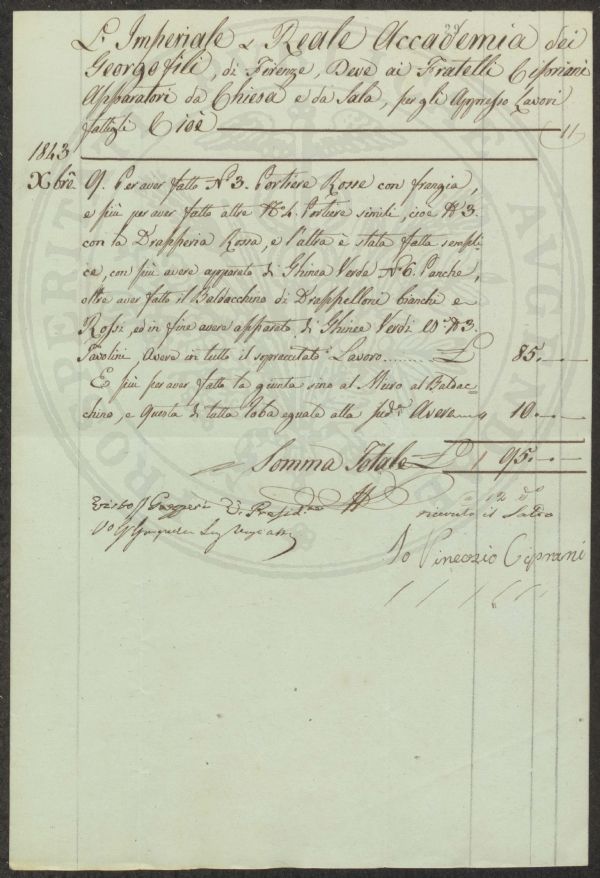 L'Imperiale e Reale Accademia dei
Georgofili, di Firenze, Deve ai Fratelli Cipriani
Apparatori da Chiesa e da Sala, per gli Appresso Lavori
fattigli Cioè
1843
Xbre. 9. Per aver fatto No 3. Portiere Rosse con frangia,
e più per aver fatto altre No 4. Portiere simili, cioè No 3.
con la Drapperia Rossa, e l'altra è stata fatta sempli=
ce, con più avere apparato di Ghinea Verda No 6. Panche,
oltre aver fatto il Baldacchino di Drappelloni bianchi e
Rossi, ed in fine avere apparato di Ghinee Verdi No 3.
Tavolini, Avere in tutto il sopraccitato Lavoro £ 85.--
E più per aver fatto la giunta sino al Muro al Baldac=
chino, e Questa di tutta Roba eguale alla sud.a Avere " 10.--
Somma Totale £ 95.--
a 12 do
Visto Gazzeri V. Presid.e ricevuto il Saldo
Io Cipriani